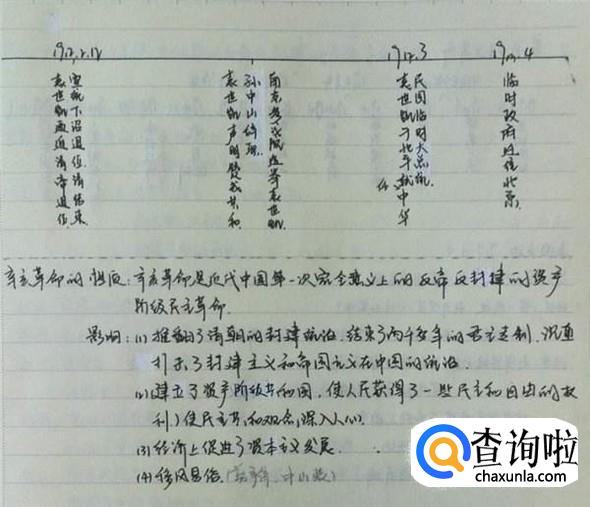 1912.2.12
1912.3
1912.4
宣统下诏退位清结束
袁世凯逼迫清帝退位
孙中山辞职
袁世凯声明赞成共和
民国临时大总统
袁世凯于北平就中华
任
临时政府迁往北京
辛亥革命的性质:辛亥革命是近代中国第一次完全意义上的反帝反封建的资产
阶级民主革命.
影响:(1)推翻了清朝的封建统治.结束了两千多年的君主专制.沉重
打击了封建主义和帝国主义在中国的统治.
(2)建立了资产阶级共和国,使人民获得了一些民主和自由的权
利)使民主共和观念深入人心.
(3)经济上促进了资本主义发展.
(4)移风易俗(中山装)
查询啦
chaxunla.com